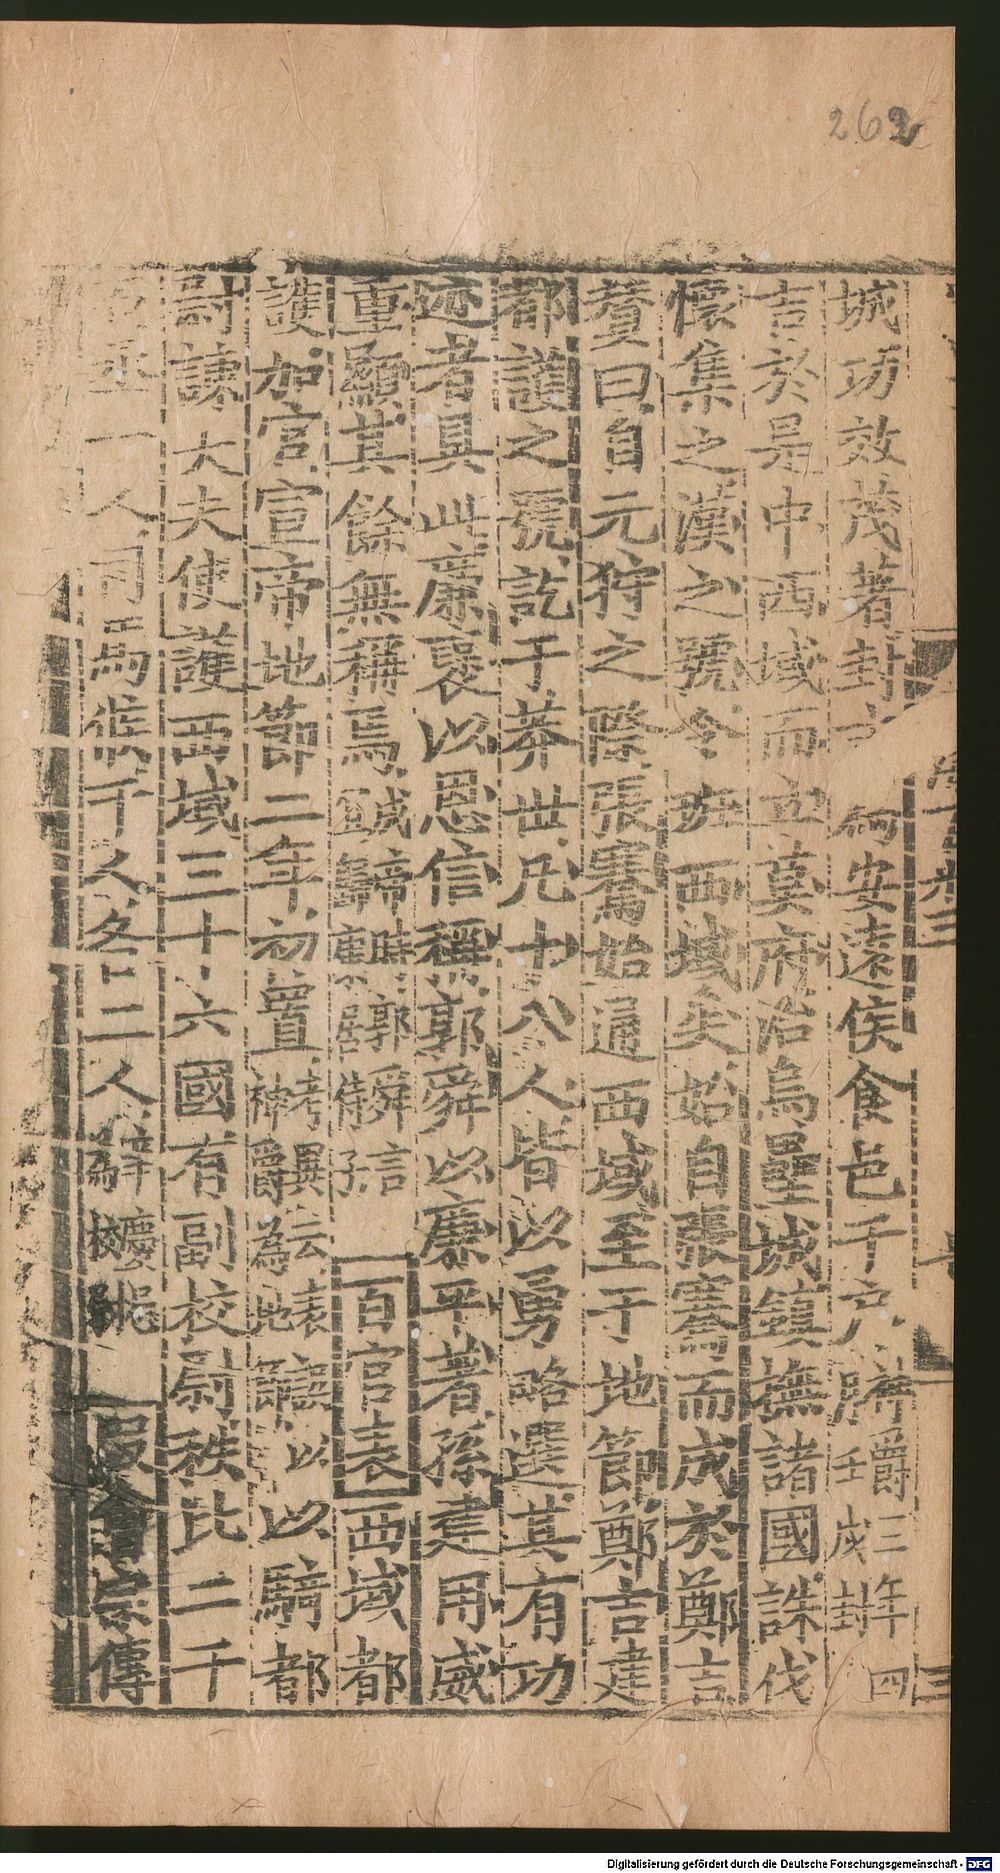 262
城功效茂著封吉 安遠侯食邑千户 神爵三年四
月壬戌封
吉於是中西域而立莫府治烏壘城鎮撫諸國誅伐
懷集之漢之號令班西域矣始自張騫而成於鄭吉
贊曰自元狩之際張騫始通西域至于地節鄭吉建
都護之號訖于莽世凡十八人皆以勇略選其有功
迹者具此廉褒以恩信稱郭舜以廉平著孫建用威
重顯其餘無稱焉 誠帝時郭舜言
宜歸康居侍子 百官表 西域都
護加官宣帝地節二年初置 考異云表誤以
神爵為地節 以騎都
尉諫大夫使護西域三十六國有副校尉秩比二千
石丞一人司馬候千人各二人 辛慶忌
為校尉 段會宗傳
三
Digitalisierung gefördert durch die Deutsche Forschungsgemeinschaft - DFG